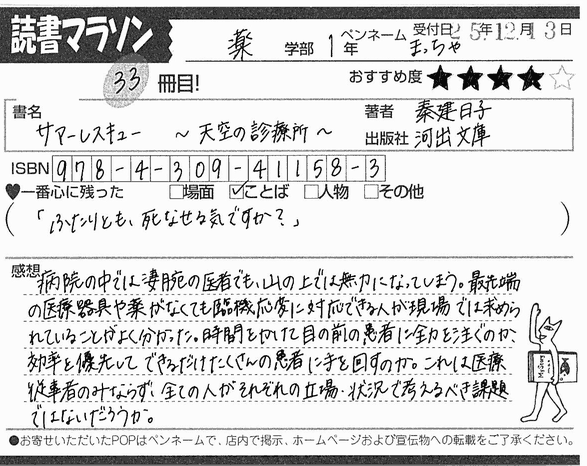 読書マラソン
薬 学部 1年 ペンネーム まっちゃ 受付日25年12月3日
33 冊目! おすすめ度 ★★★★☆
書名 サマーレスキュー ~天空の診療所~
著者 秦建日子
出版社 河出文庫
ISBN 978-4-309-41158-3
♥一番心に残った □場面 ☑ことば □人物 □その他
(「ふたりとも、死なせる気ですか?」)
感想 病院の中では凄腕の医者でも、山の上では無力になってしまう。最先端
の医療器具や薬がなくても臨機応変に対応できる人が現場では求めら
れていることがよく分かった。時間をかけて目の前の患者に全力を注ぐのか、
効率を優先してできるだけたくさんの患者に手を回すのか。これは医療
従事者のみならず、全ての人がそれぞれの立場・状況で考えるべき課題
ではないだろうか。
●お寄せいただいたPOPはペンネームで、店内で掲示、ホームページおよび宣伝物への転載をご了承ください。